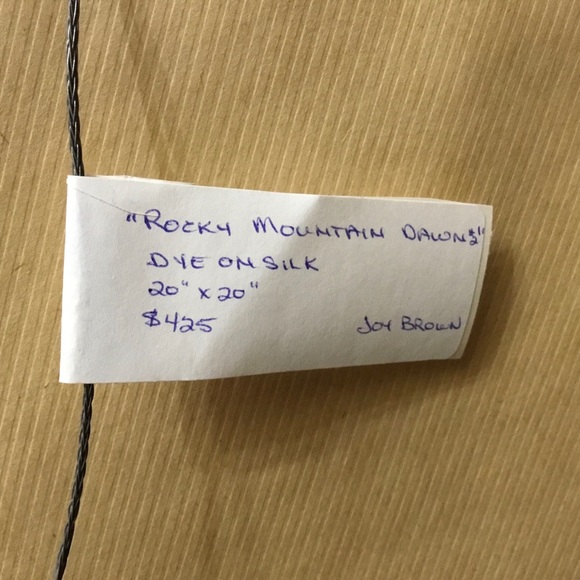 "ROCKY MOUNTAIN DAWN $2"
DYE ON SILK
20" x 20"
$425
JOY BROWN